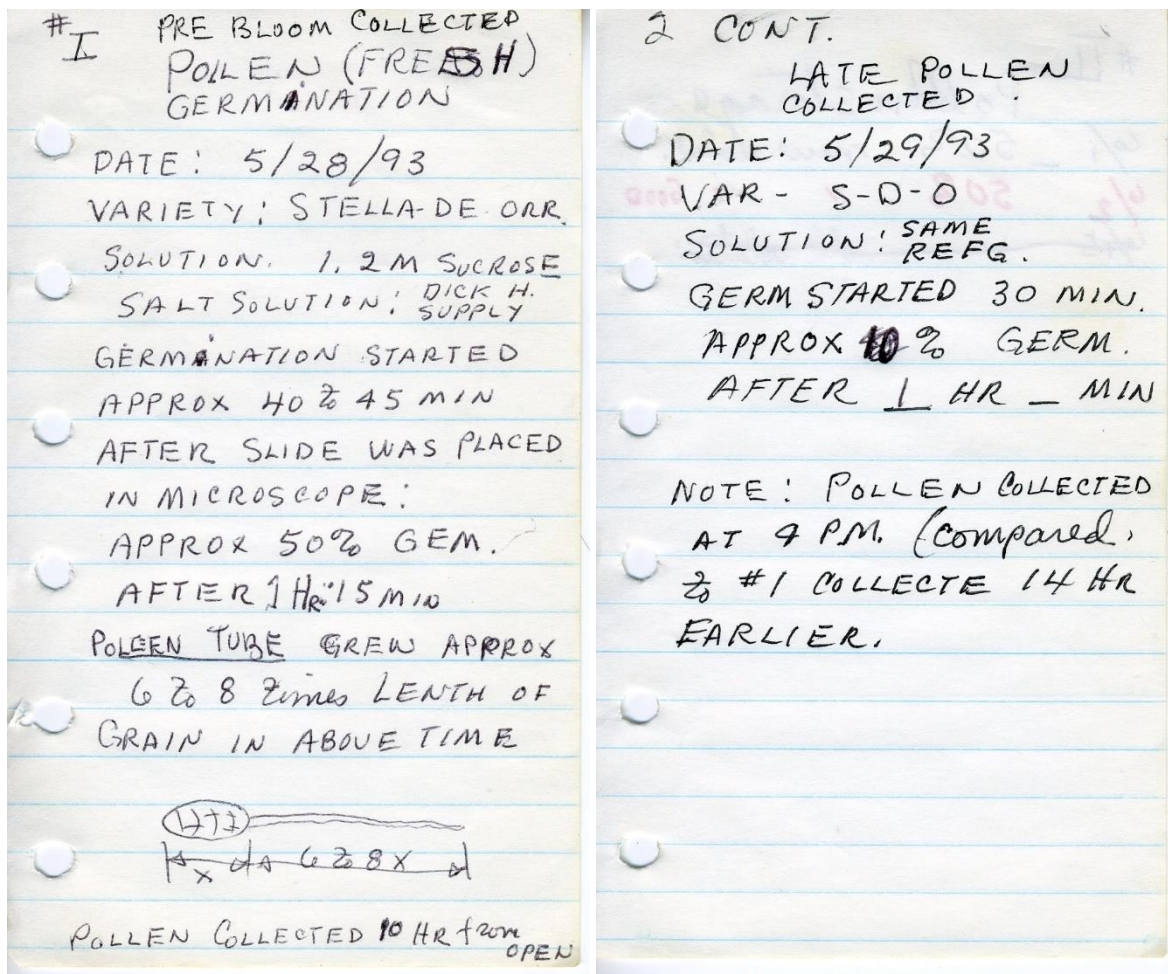 # I PRE BLOOM COLLECTED
POLLEN (FRESH)
GERMINATION
DATE: 5/28/93
VARIETY: STELLA-DE ORR.
SOLUTION. 1.2 M SUCROSE
SALT SOLUTION: DICK H.
SUPPLY
GERMINATION STARTED
APPROX 40 to 45 MIN
AFTER SLIDE WAS PLACED
IN MICROSCOPE:
APPROX 50% GEM.
AFTER 1 HR: 15 MIN
POLEEN TUBE GREW APPROX
6 to 8 times LENTH OF
GRAIN IN ABOVE TIME
X
6 to 8 X
POLLEN COLLECTED 10 HR from
OPEN
2 CONT.
LATE POLLEN
COLLECTED.
DATE: 5/29/93
VAR - S-D-O
SOLUTION: SAME
REFG.
GERM STARTED 30 MIN.
APPROX 10 % GERM.
AFTER 1 HR _ MIN
NOTE: POLLEN COLLECTED
AT 9 P.M. (compared.
to #1 COLLECTE 14 HR
EARLIER.